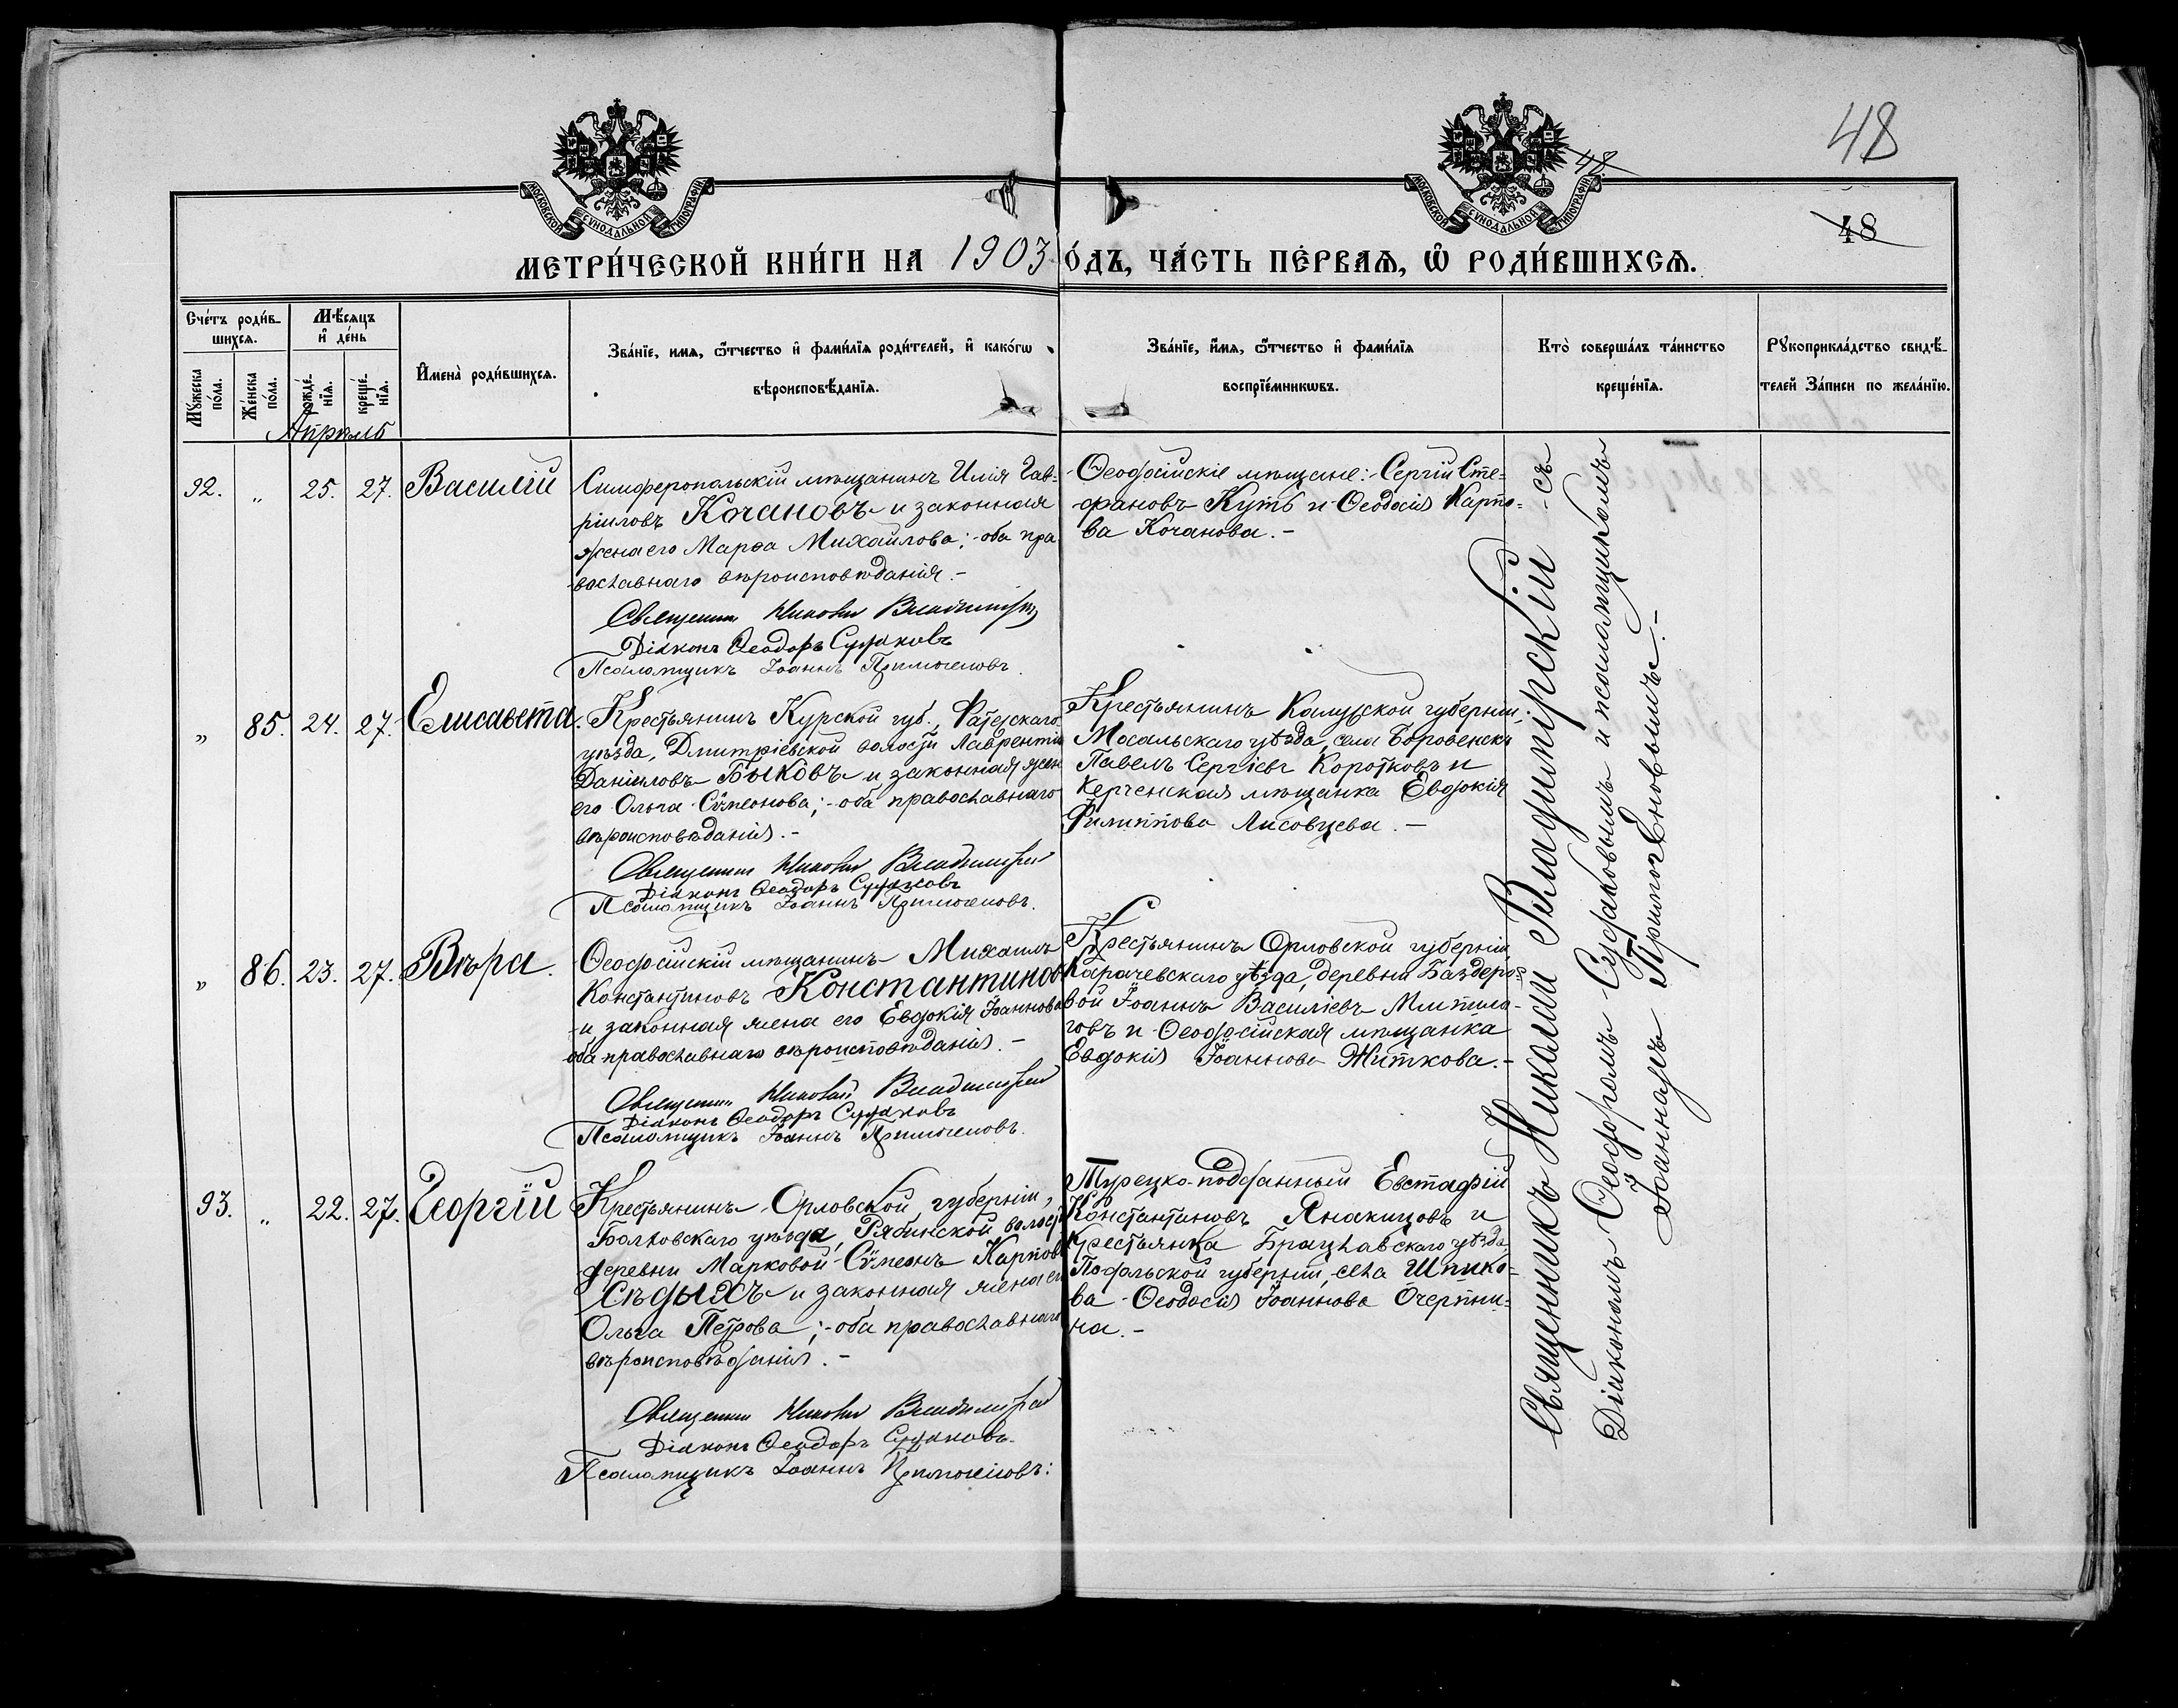 48
48
48
МОСКОВСКОЙ СѴНОДАЛЬНОЙ ТИПОГРАФІИ.
МОСКОВСКОЙ СѴНОДАЛЬНОЙ ТИПОГРАФІИ.
МЕТРИ́ЧЕСКОЙ КНИ́ГИ НА 1903 О́ДЪ, ЧА́СТЬ ПЕ́РВАѦ, Ѽ РОДИ́ВШИХСѦ.
Сче́тъ роди́в-
шихсѧ.
Мѣ́сѧцъ
и҆ де́нь
Мꙋ́жеска
по́ла.
Же́нска
по́ла.
рожде́-
нїѧ.
креще́-
нїѧ.
И҆мена̀ роди́вшихсѧ.
Зва́нїе, имѧ, ѻ҆́тчество и҆ фами́лїѧ роди́телей, и҆ како́гѡ
вѣроисповѣ́данїѧ.
Зва́нїе, и҆́мѧ, ѻ҆́тчество и҆ фами́лїѧ
воспрїе́мникѡвъ.
Кто̀ соверша́лъ та́инство
креще́нїѧ.
Рꙋкоприкла́дство свидѣ́-
телей за́писи по жела́нїю.
Апрѣль
92. „ 25. 27. Василій
Симферопольскій мѣщанинъ Илія Гав-
ріиловъ Кочановъ и законная
жена его Марѳа Михайлова; - оба пра
вославнаго вѣроисповѣданія. -
Священникъ Николай Владимірскій
Діаконъ Ѳеодоръ Судаковъ
Псаломщикъ Іоаннъ Примогеновъ.
Ѳеодосійскіе мѣщане: Сергій Сте-
фановъ Куть и Ѳеодосія Карпо-
ва Кочанова. -
„ 85. 24. 27. Елисавета.
Крестьянинъ Курской губ., Фатежскаго
уѣзда, Дмитріевской волости Лаврентій
Даніиловъ Быковъ и законная жен
его Ольга Сѵмеонова; - оба православнаго
вѣроисповѣданія. -
Священникъ Николай Владимірскій
Діаконъ Ѳеодоръ Судаковъ
Псаломщикъ Іоаннъ Примогеновъ.
Крестьянинъ Калужской губерніи,
Мосальскаго уѣзда, села Боровенска
Павелъ Сергіевъ Коротковъ и
Керченская мѣщанка Евдокія
Филиппова Лисовцева. -
„ 86. 23. 27. Вѣра.
Ѳеодосійскій мѣщанинъ Михаилъ
Константиновъ Константинов
и законная жена его Евдокія Іоаннова
оба православнаго вѣроисповѣданія. -
Священникъ Николай Владимірскій
Діаконъ Ѳеодоръ Судаковъ
Псаломщикъ Іоаннъ Примогеновъ.
Крестьянинъ Орловской губерніи,
Карачевскаго уѣзда, деревни Баздеро-
вой Іоаннъ Василіевъ
говъ и Ѳеодосійская мѣщанка
Евдокія Іоаннова Житкова. -
93. „ 22. 27. Георгій
Крестьянинъ Орловской губерніи,
Болховскаго уѣзда, Рябинской волости
деревни Марковой Сѵмеонъ Карпов
Сѣдыхъ и законная жена ег
Ольга Петрова; - оба православнаго
вѣроисповѣданія. -
Священникъ Николай Владимірскій
Діаконъ Ѳеодоръ Судаковъ
Псаломщикъ Іоаннъ Примогеновъ.
Турецко-подданный Евстафій
Константиновъ Янакицовъ и
Крестьянка Брацлавскаго уѣзда,
Подольской губерніи, села Шпико-
ва Ѳеодосія Іоаннова Очерпни-
на. -
Священникъ Николай Владимірскій - съ
Діакономъ Ѳеодоромъ Судаковымъ и псаломщикомъ
Іоанномъ Примогеновымъ. -